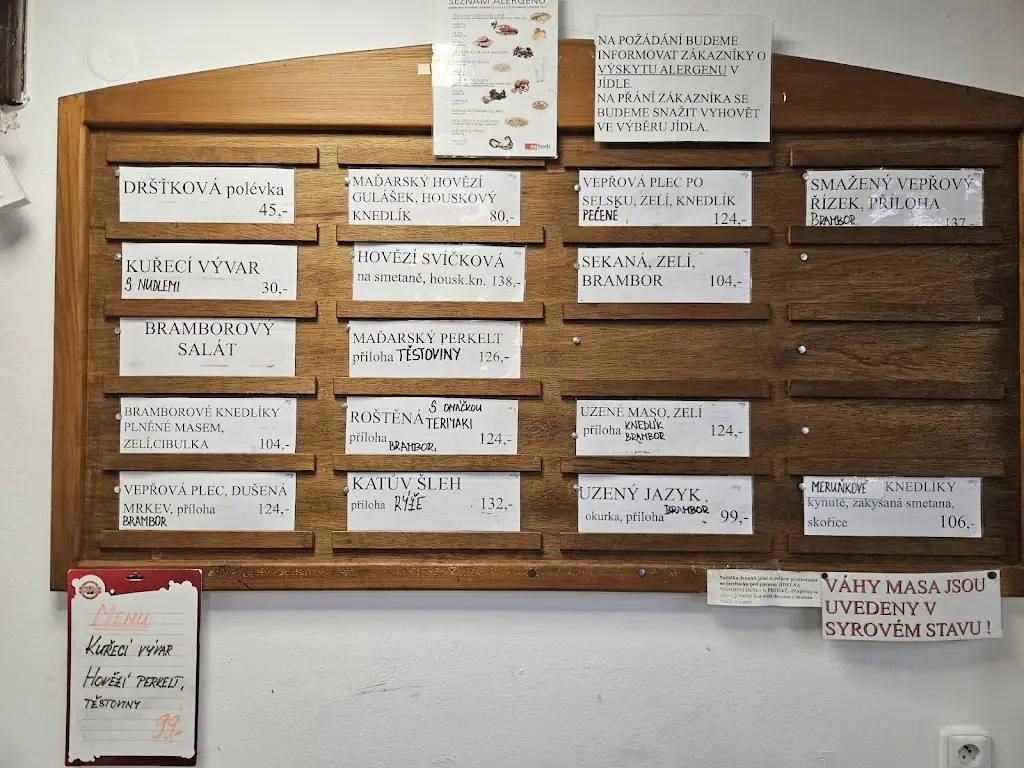 SEZNAM ALERGENŮ
NA POŽÁDÁNÍ BUDEME
INFORMOVAT ZÁKAZNÍKY O
VÝSKYTU ALERGENU V
JÍDLE.
NA PŘÁNÍ ZÁKAZNÍKA SE
BUDEME SNAŽIT VYHOVĚT
VE VÝBĚRU JÍDLA.
DRŠŤKOVÁ polévka
45,-
KUŘECÍ VÝVAR
S NUDLEMI 30,-
BRAMBOROVÝ
SALÁT
BRAMBOROVÉ KNEDLÍKY
PLNĚNÉ MASEM,
ZELÍ,CIBULKA 104,-
VEPŘOVÁ PLEC, DUŠENÁ
MRKEV, příloha 124,-
BRAMBOR
MAĎARSKÝ HOVĚZÍ
GULÁŠEK, HOUSKOVÝ
KNEDLÍK 80,-
HOVĚZÍ SVÍČKOVÁ
na smetaně, housk.kn. 138,-
MAĎARSKÝ PERKELT
příloha TĚSTOVINY 126,-
ROŠTĚNÁ S OMÁČKOU
TERIYAKI
příloha 124,-
BRAMBOR
KATŮV ŠLEH
příloha RÝŽE 132,-
VEPŘOVÁ PLEC PO
SELSKU, ZELÍ, KNEDLÍK
PEČENÉ 124,-
SEKANÁ, ZELÍ,
BRAMBOR 104,-
UZENÉ MASO, ZELÍ
příloha KNEDLÍK 124,-
BRAMBOR
UZENÝ JAZYK,
okurka, příloha BRAMBOR 99,-
SMAŽENÝ VEPŘOVÝ
ŘÍZEK, PŘÍLOHA
BRAMBOR 137,-
MERUŇKOVÉ KNEDLÍKY
kynuté, zakysaná smetana,
skořice 106,-
VÁHY MASA JSOU
UVEDENY V
SYROVÉM STAVU !
MENU
KUŘECÍ VÝVAR
HOVĚZÍ PERKELT,
TĚSTOVINY
99,-